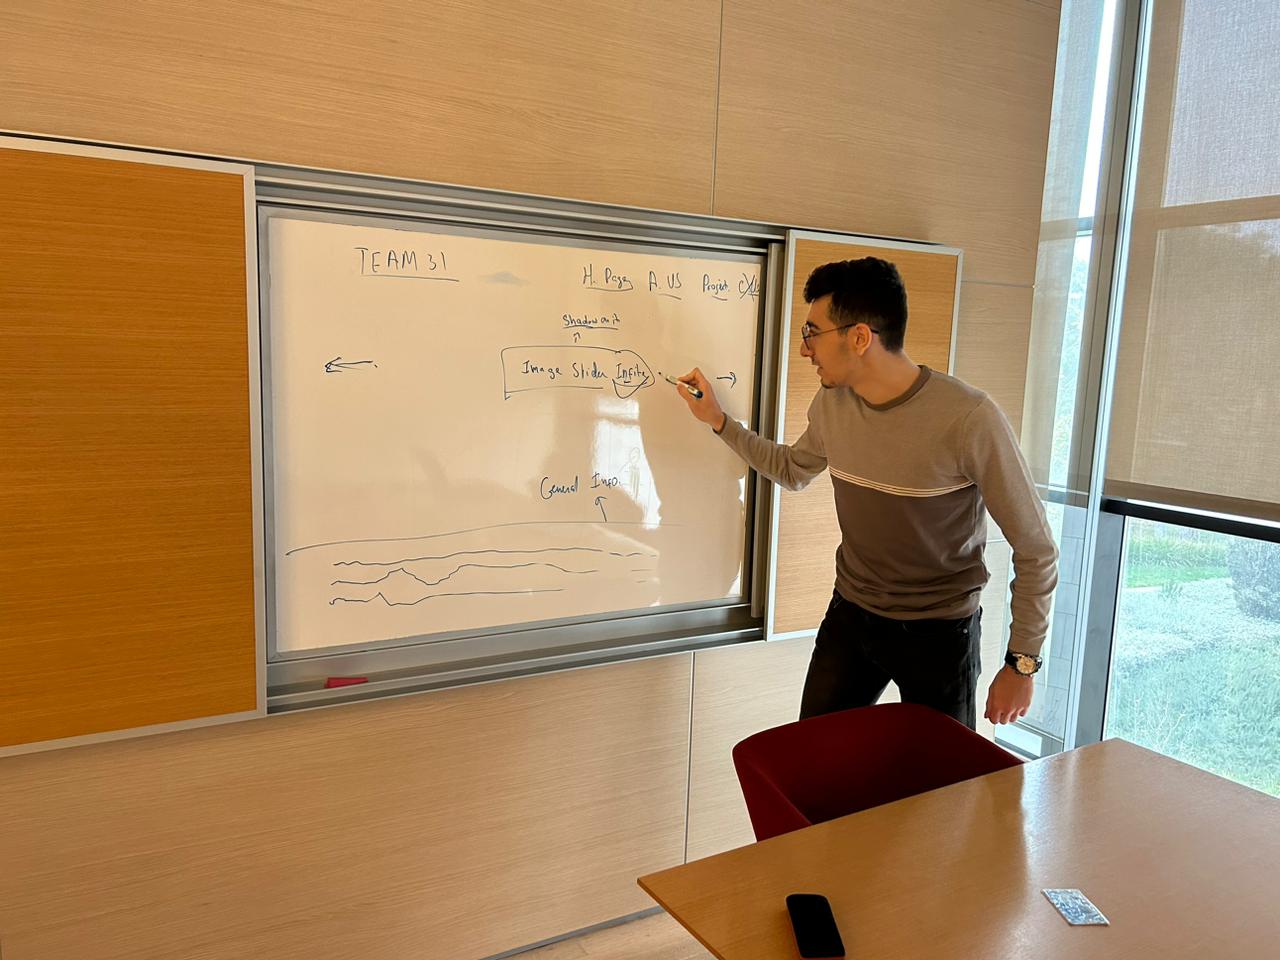 TEAM 31
H. Page A. US Project.
Shadow on it
Image Slider Infite
General Info.